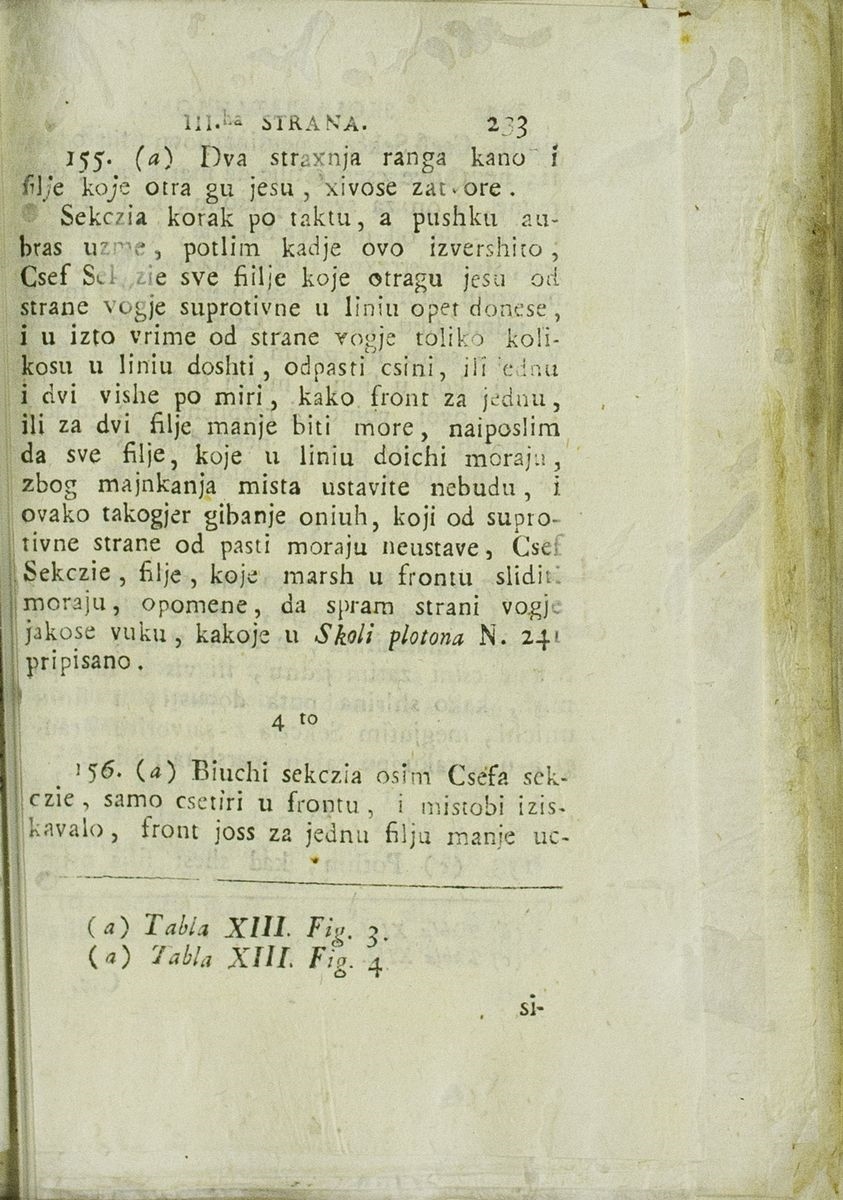 III.ha STRANA. 233
155. (a) Dva straxnja ranga kano i
filje koje otra gu jesu, xivose zatvore.
Sekczia korak po taktu, a pushku au-
bras uzme, potlim kadje ovo izvershito,
Csef Sekczie sve fiilje koje otragu jesu od
strane vogje suprotivne u liniu opet donese,
i u izto vrime od strane vogje toliko koli-
kosu u liniu doshti, odpasti csini, ili jednu
i dvi vishe po miri, kako front za jednu,
ili za dvi filje manje biti more, naiposlim
da sve filje, koje u liniu doichi moraju,
zbog majnkanja mista ustavite nebudu, i
ovako takogjer gibanje oniuh, koji od supro-
tivne strane od pasti moraju neustave, Csef
Sekczie, filje, koje marsh u frontu slidit
moraju, opomene, da spram strani vogje
jakose vuku, kakoje u Skoli plotona N. 241
pripisano.
4 to
156. (a) Biuchi sekczia osim Csefa sek-
czie, samo csetiri u frontu, i mistobi izis-
kavalo, front joss za jednu filju manje uc-
(a) Tabla XIII. Fig. 3.
(a) Tabla XIII. Fig. 4
si-